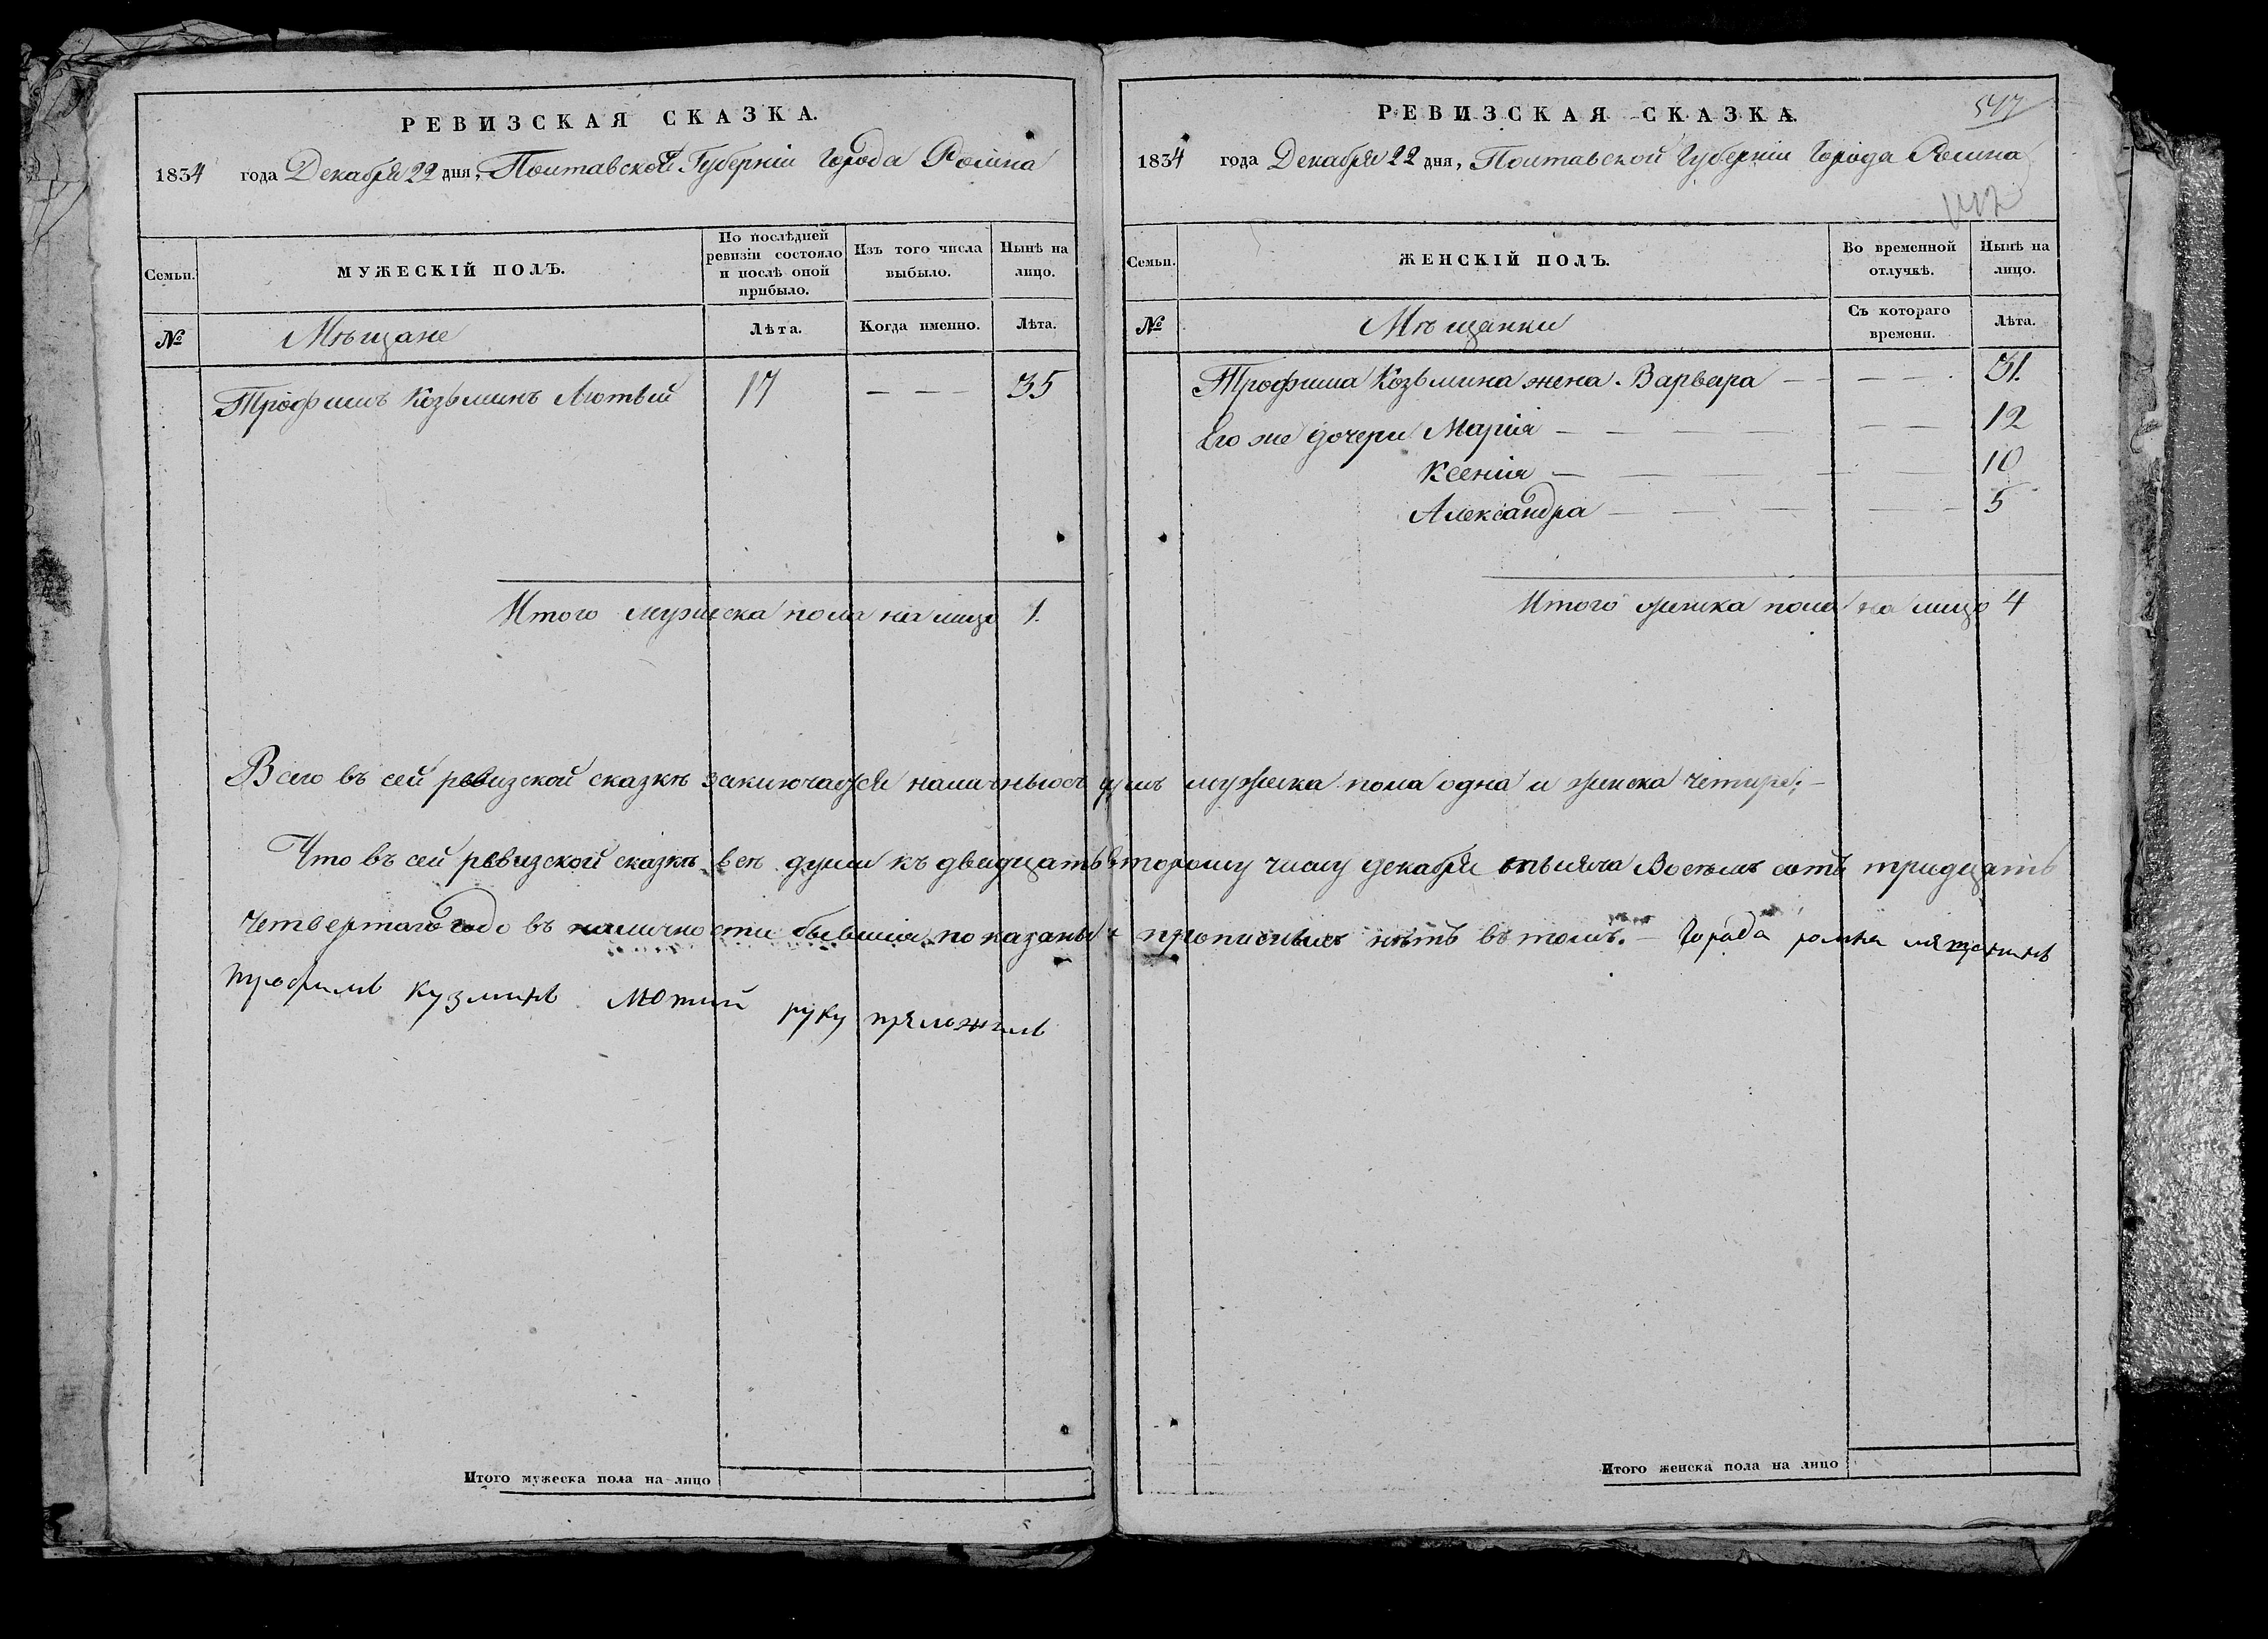 РЕВИЗСКАЯ СКАЗКА.
1834 года Декабря 22 дня, Полтавской Губерніи Города Ромна
Семьи.
МУЖЕСКІЙ ПОЛЪ.
По послѣдней
ревизіи состояло
и послѣ оной
прибыло.
Изъ того числа
выбыло.
Нынѣ на
лицо.
№
Мѣщане
Лѣта.
Когда именно.
Лѣта.
Трофимъ Козьминъ Лютый 17 — — 35
Итого мужеска пола на лицо 1.
РЕВИЗСКАЯ СКАЗКА.
547
1834 года Декабря 22 дня, Полтавской Губерніи Города Ромна
Семьи.
ЖЕНСКІЙ ПОЛЪ.
Во временной
отлучкѣ.
Нынѣ на
лицо.
№
Мѣщанки
Съ котораго
времени.
Лѣта.
Трофима Козьмина жена Варвара — — — 31.
Его же дочери Марія — — — 12
Ксенія — — — 10
Александра — — — 5
Итого женска пола на лицо 4
Всего въ сей ревизской сказкѣ заключается душъ мужеска пола одна и женска четыре;—
Что въ сей ревизской сказкѣ всѣ души къ двадцать второму числу декабря тысяча Восемь сотъ тридцать
четвертаго года въ наличности бывшія показаны и прописныхъ нѣтъ въ томъ. — Города ромна мящанинъ
трофимъ кузминъ лютий руку приложилъ
Итого мужеска пола на лицо
Итого женска пола на лицо